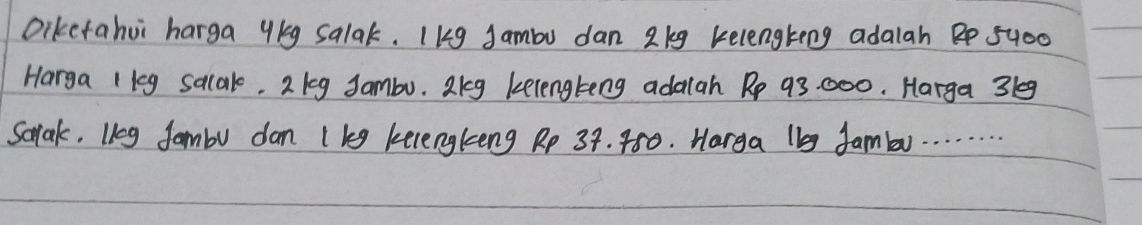 Diketahui harga 4kg salak. 1kg Jambu dan 2kg kelengkeng adalah Rp 5400
Harga 1 kg salak. 2 kg Jambu. 2kg kelengkeng adalah Rp 93.000. Harga 3kg
Salak. 1kg Jambu dan 1 kg kelengkeng Rp 37.750. Harga 1kg Jambu........